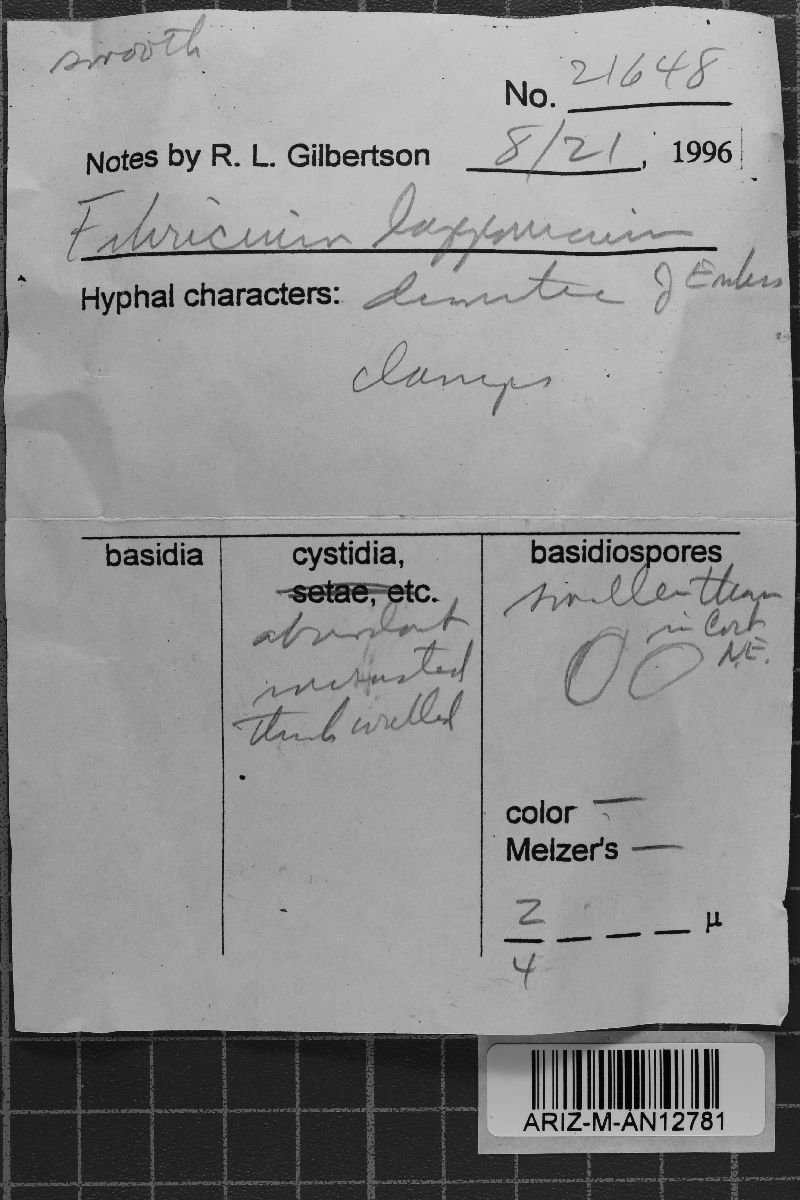 smooth
No. 21648
Notes by R. L. Gilbertson 8/21, 1996
Fibricium lapponicum
Hyphal characters: dimitic J Enkers
clamps
basidia
cystidia,
setae, etc.
abundant
incrusted
thick walled
basidiospores
smaller than
in Cort
N.E.
color —
Melzer's —
2
4
µ
ARIZ-M-AN12781